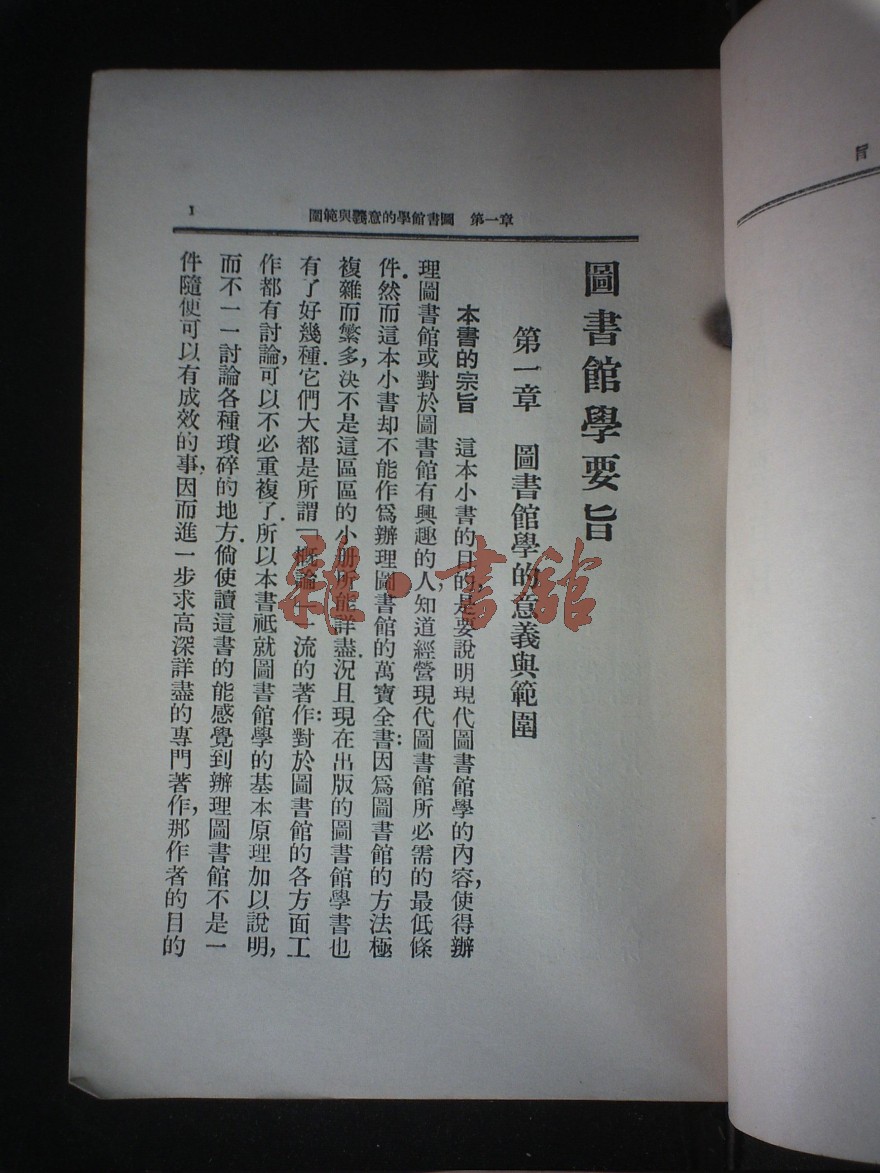 第一章　圖書館學的意義與範圍
1
圖書館學要旨
第一章　圖書館學的意義與範圍
本書的宗旨　這本小書的目的,是要說明現代圖書館學的內容,使得辦
理圖書館或對於圖書館有興趣的人,知道經營現代圖書館所必需的最低條
件.然而這本小書却不能作爲辦理圖書館的萬寶全書:因爲圖書館的方法極
複雜而繁多,決不是這區區的小册所能詳盡.況且現在出版的圖書館學書也
有了好幾種.它們大都是所謂「概論」一流的著作:對於圖書館的各方面工
作都有討論,可以不必重複了.所以本書祗就圖書館學的基本原理加以說明,
而不一一討論各種瑣碎的地方.倘使讀這書的能感覺到辦理圖書館不是一
件隨便可以有成效的事,因而進一步求高深詳盡的專門著作,那作者的目的
旨
雜·書館